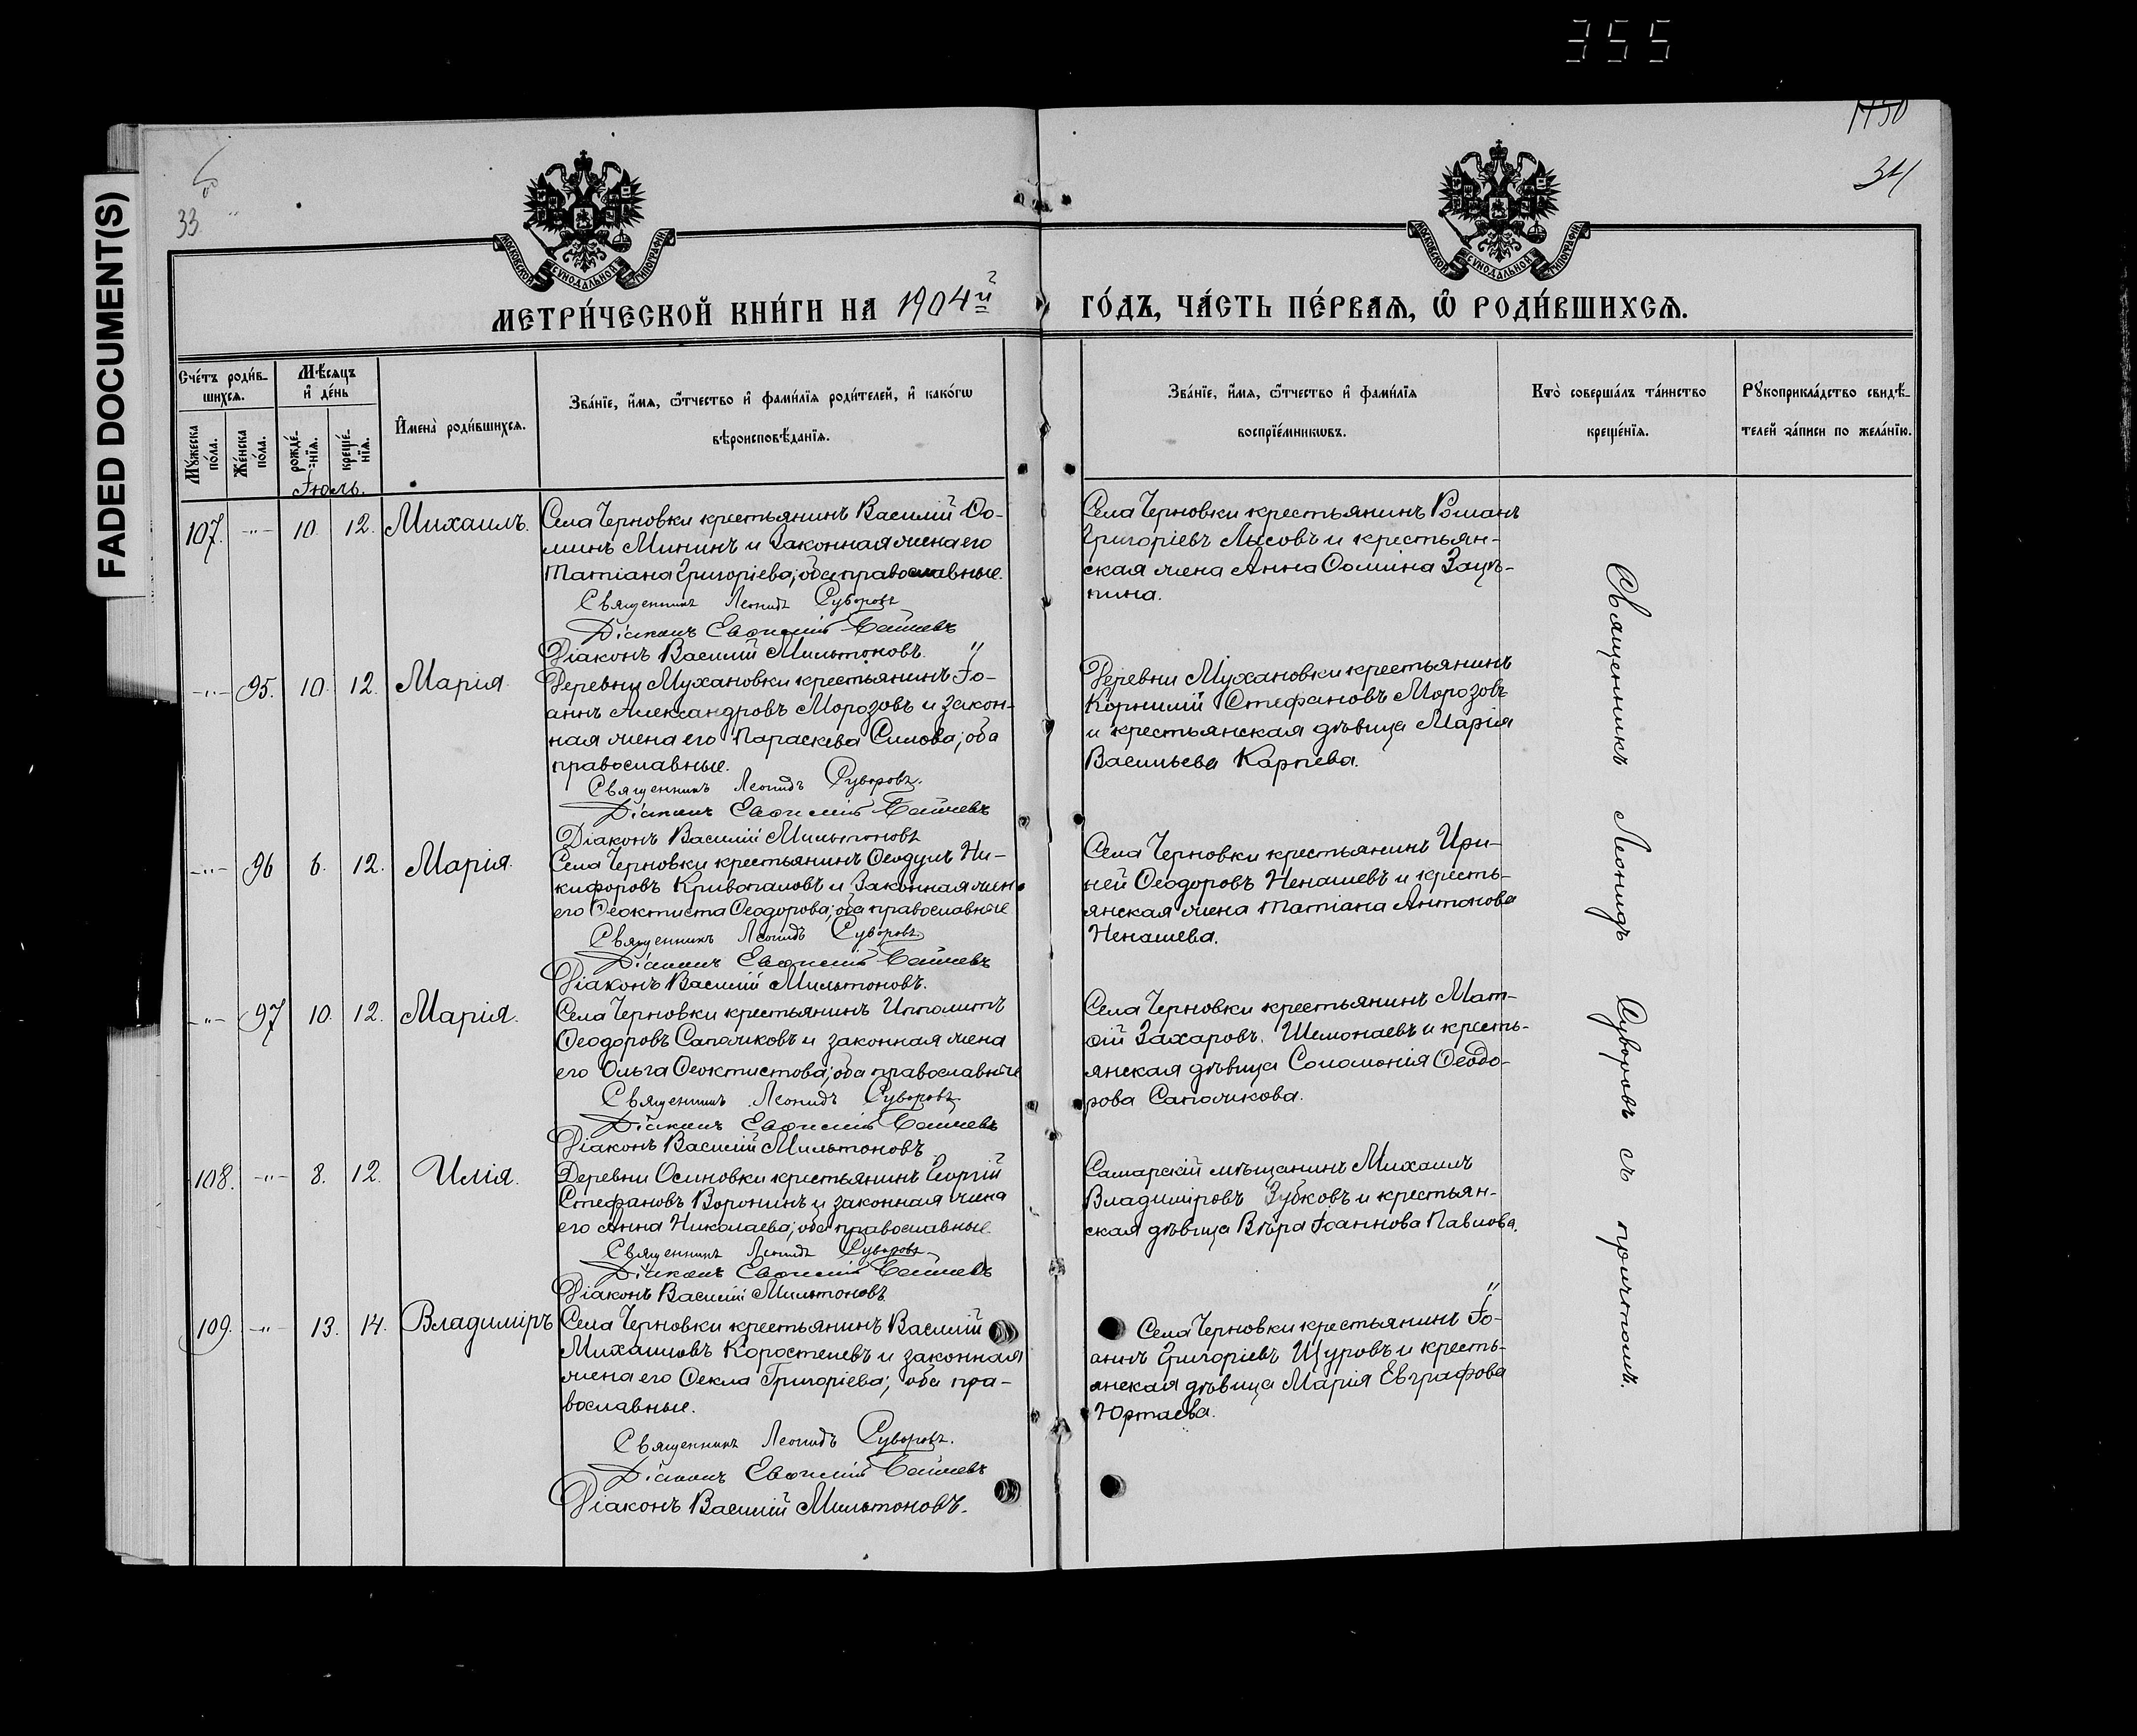 355
FADED DOCUMENT(S)
33
1150
34
МОСКОВСКОЙ СѴНОДАЛЬНОЙ ТИПОГРАФІИ
МОСКОВСКОЙ СѴНОДАЛЬНОЙ ТИПОГРАФІИ
МЕТРИ́ЧЕСКОЙ КНИ́ГИ НА 1904й
ГО́ДЪ, ЧА́СТЬ ПЕ́РВАѦ, Ѽ РОДИ́ВШИХСѦ.
Сче́тъ роди́в-
шихсѧ.
Мꙋ́жеска
по́ла.
Же́нска
по́ла.
Мѣ́сѧцъ
и҆ де́нь
рожде́-
нїѧ.
креще́-
нїѧ.
И҆мена̀ роди́вшихсѧ.
Зва́нїе, и҆́мѧ, ѻ҆́тчество и҆ фами́лїѧ роди́телей, и҆ како́гѡ
вѣроисповѣ́данїѧ.
Зва́нїе, и҆́мѧ, ѻ҆́тчество и҆ фами́лїѧ
воспрїе́мникѡвъ.
Кто̀ соверша́лъ та́инство
креще́нїѧ.
Рꙋкоприкла́дство свидѣ́-
телей за́писи по жела́нїю.
Іюль.
107. -"- 10 12. Михаилъ.
Села Черновки крестьянинъ Василій Ѳо-
минъ Мининъ и законная жена его
Татіана Григоріева; оба православные.
Священникъ Леонидъ Суворовъ
Діаконъ Евѳимій
Діаконъ Василій Мильтоновъ.
Села Черновки крестьянинъ Романъ
Григоріевъ Лысовъ и крестьян-
ская жена Анна Ѳомина Зацѣ-
пина.
-"- 95. 10. 12. Марія.
Деревни Мухановки крестьянинъ Іо-
аннъ Александровъ Морозовъ и закон-
ная жена его Параскева Силова; оба
православные.
Священникъ Леонидъ Суворовъ.
Діаконъ Евѳимій
Діаконъ Василій Мильтоновъ
Деревни Мухановки крестьянинъ
Корнилій Стефановъ Морозовъ
и крестьянская дѣвица Марія
Васильева Карпева.
-"- 96 6. 12. Марія.
Села Черновки крестьянинъ Ѳеодулъ Ни-
кифоровъ Кривопаловъ и законная жен
его Ѳеоктиста Ѳеодорова; оба православные
Священникъ Леонидъ Суворовъ
Діаконъ Евѳимій
Діаконъ Василій Мильтоновъ.
Села Черновки крестьянинъ Ири-
ней Ѳеодоровъ Ненашевъ и кресть-
янская жена Татіана Антонова
Ненашева.
-"- 97 10. 12. Марія.
Села Черновки крестьянинъ Ипполитъ
Ѳеодоровъ Сапожковъ и законная жена
его Ольга Ѳеоктистова; оба православные
Священникъ Леонидъ Суворовъ
Діаконъ Евѳимій
Діаконъ Василій Мильтоновъ
Села Черновки крестьянинъ Мат-
ѳій Захаровъ Шемонаевъ и кресть-
янская дѣвица Соломонія Ѳеодо-
рова Сапожкова.
108. -"- 8. 12. Илія.
Деревни Осиновки крестьянинъ Георгій
Стефановъ Воронинъ и законная жена
его Анна Николаева; оба православные.
Священникъ Леонидъ Суворовъ
Діаконъ Евѳимій
Діаконъ Василій Мильтоновъ
Самарскій мѣщанинъ Михаилъ
Владиміровъ Зубковъ и крестьян-
ская дѣвица Вѣра Іоаннова Павлова.
109. -"- 13. 14. Владиміръ
Села Черновки крестьянинъ Василій
Михаиловъ Коростелевъ и законная
жена его Ѳекла Григоріева; оба пра-
вославные.
Священникъ Леонидъ Суворовъ.
Діаконъ Евѳимій
Діаконъ Василій Мильтоновъ.
Села Черновки крестьянинъ Іо-
аннъ Григоріевъ Щуровъ и кресть-
янская дѣвица Марія Евграфова
Юртаева.
Священникъ Леонидъ Суворовъ съ причтомъ.